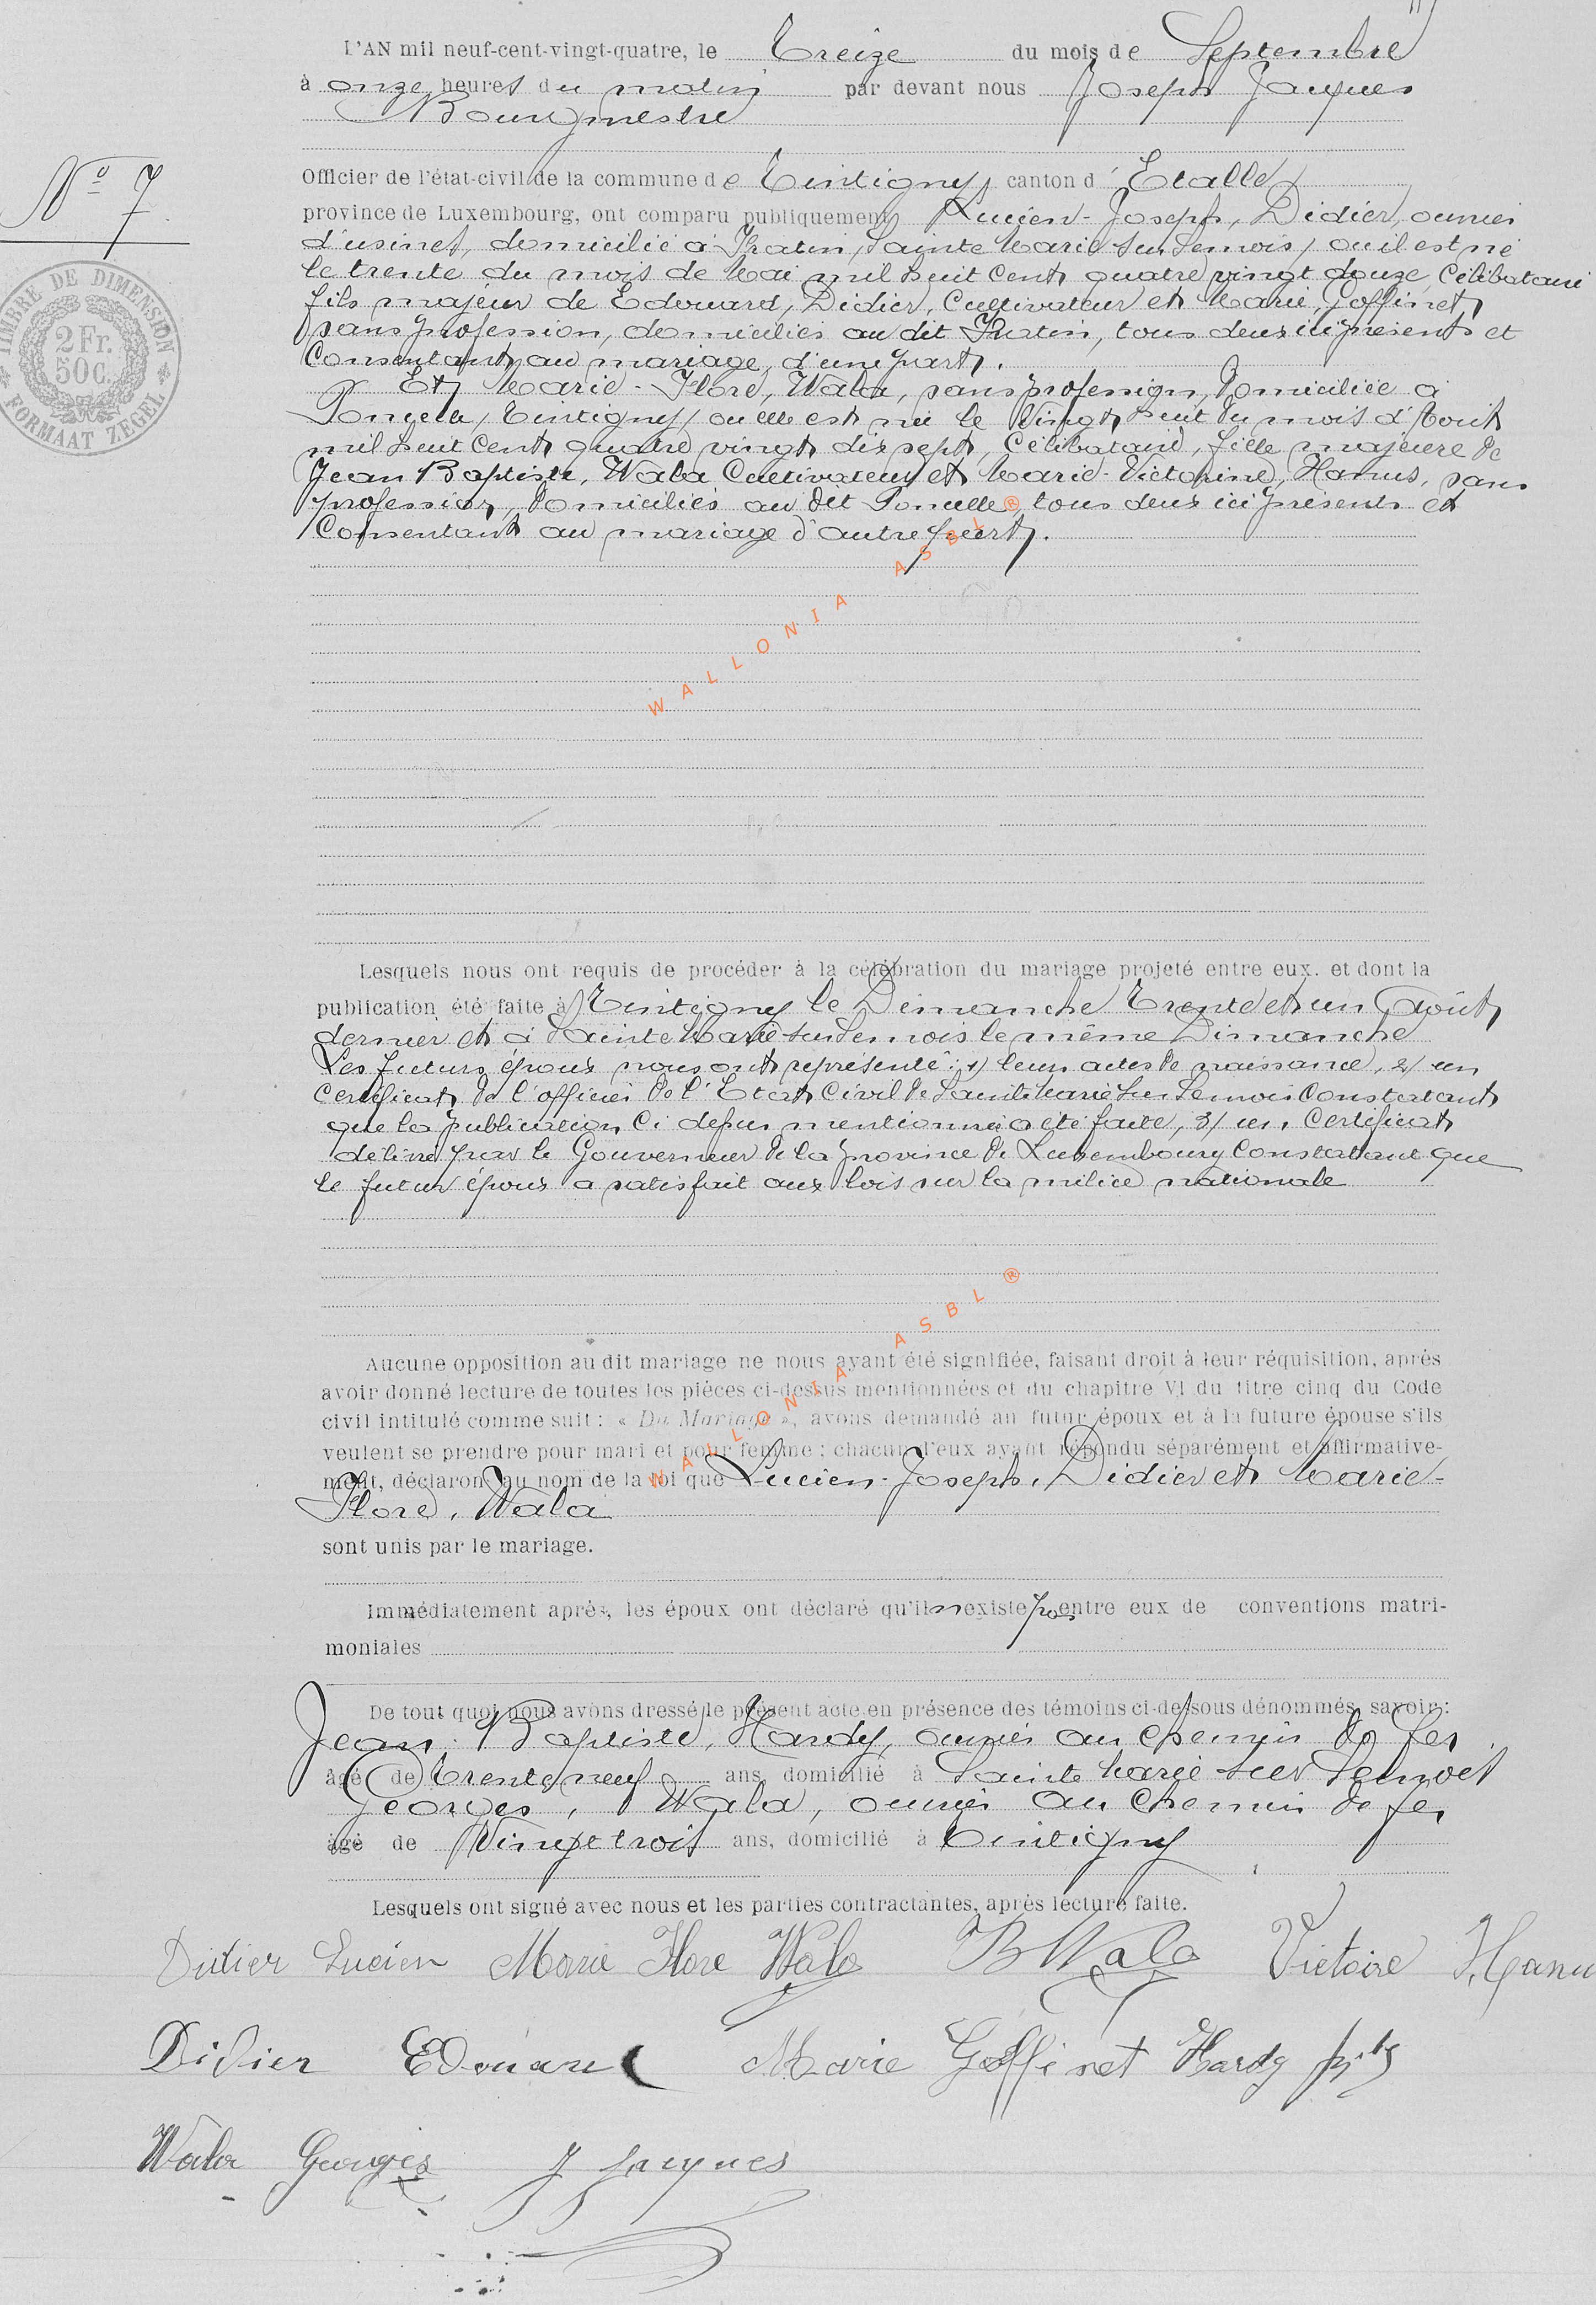 L'AN mil neuf-cent-vingt-quatre, le Treize du mois de Septembre
à onze heures du matin par devant nous Joseph Jacques
Bourgmestre
N° 7
Officier de l'état-civil de la commune de Tintigny canton d'Etalle
province de Luxembourg, ont comparu publiquement Lucien-Joseph, Didier, ouvrier
d'usines, domicilié à Fratin, Sainte Marie sur Semois, où il est né
le trente du mois de Mai mil huit cent quatre vingt douze, célibataire
fils majeur de Edouard, Didier, Cultivateur et Marie, Goffinet,
sans profession, domiciliés au dit Fratin, tous deux ici présents et
Consentant au mariage, d'une part.
Et Marie-Flore, Wala, sans profession, domiciliée à
Poncelle, Tintigny, où elle est née le Vingt huit du mois d'Aout
mil huit cent quatre vingt dix sept, célibataire, fille majeure de
Jean Baptiste, Wala Cultivateur et Marie-Victorine, Hanus, sans
profession, domiciliés au dit Poncelle, tous deux ici présents et
Consentant au mariage d'autre part.
TIMBRE DE DIMENSION
2 Fr.
50 C.
FORMAAT ZEGEL
WALLONIA ASBL ®
Lesquels nous ont requis de procéder à la célébration du mariage projeté entre eux. et dont la
publication été faite à Tintigny le Dimanche Trente et un Août
dernier et à Sainte Marie sur Semois le même Dimanche
Les futurs époux nous ont représenté: 1/ leurs actes de naissance, 2/ un
certificat de l'officier de l'Etat Civil de Sainte Marie sur Semois Constatant
que la publication ci dessus mentionnée a été faite, 3/ un Certificat
délivré par le Gouverneur de la province de Luxembourg Constatant que
le futur époux a satisfait aux lois sur la milice nationale
WALLONIA ASBL ®
Aucune opposition au dit mariage ne nous ayant été signifiée, faisant droit à leur réquisition, après
avoir donné lecture de toutes les pièces ci-dessus mentionnées et du chapitre VI du titre cinq du Code
civil intitulé comme suit : « Du Mariage », avons demandé au futur époux et à la future épouse s'ils
veulent se prendre pour mari et pour femme : chacun d'eux ayant répondu séparément et affirmative-
ment, déclarons au nom de la loi que Lucien-Joseph, Didier et Marie-
Flore, Wala
sont unis par le mariage.
Immédiatement après, les époux ont déclaré qu'il n'existe pas entre eux de conventions matri-
moniales
De tout quoi nous avons dressé le présent acte en présence des témoins ci-dessous dénommés, savoir:
Jean-Baptiste, Hardy, ouvrier au chemin de fer
âgé de trente neuf ans, domicilié à Sainte Marie sur Semois
Georges, Wala, ouvrier au Chemin de fer
âgé de Vingt trois ans, domicilié à Tintigny
Lesquels ont signé avec nous et les parties contractantes, après lecture faite.
Didier Lucien Marie Flore Wala B Wala Victoire Hanu
Didier Edouard Marie Goffinet Hardy
Wala Georges J Jacques